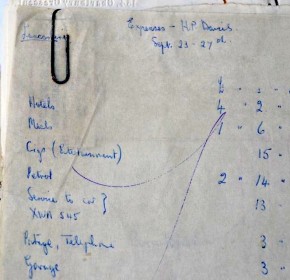 Expenses - H.P. Daniels
Sept. 23 - 27th
£
Hotels 4 " 2 "
Meals 1 " 6
Cigs (Entertainment) 15 "
Petrol 2 " 14 "
Service to car }
XWA 545 13
Postage, Telephone 3 "
Garage 3